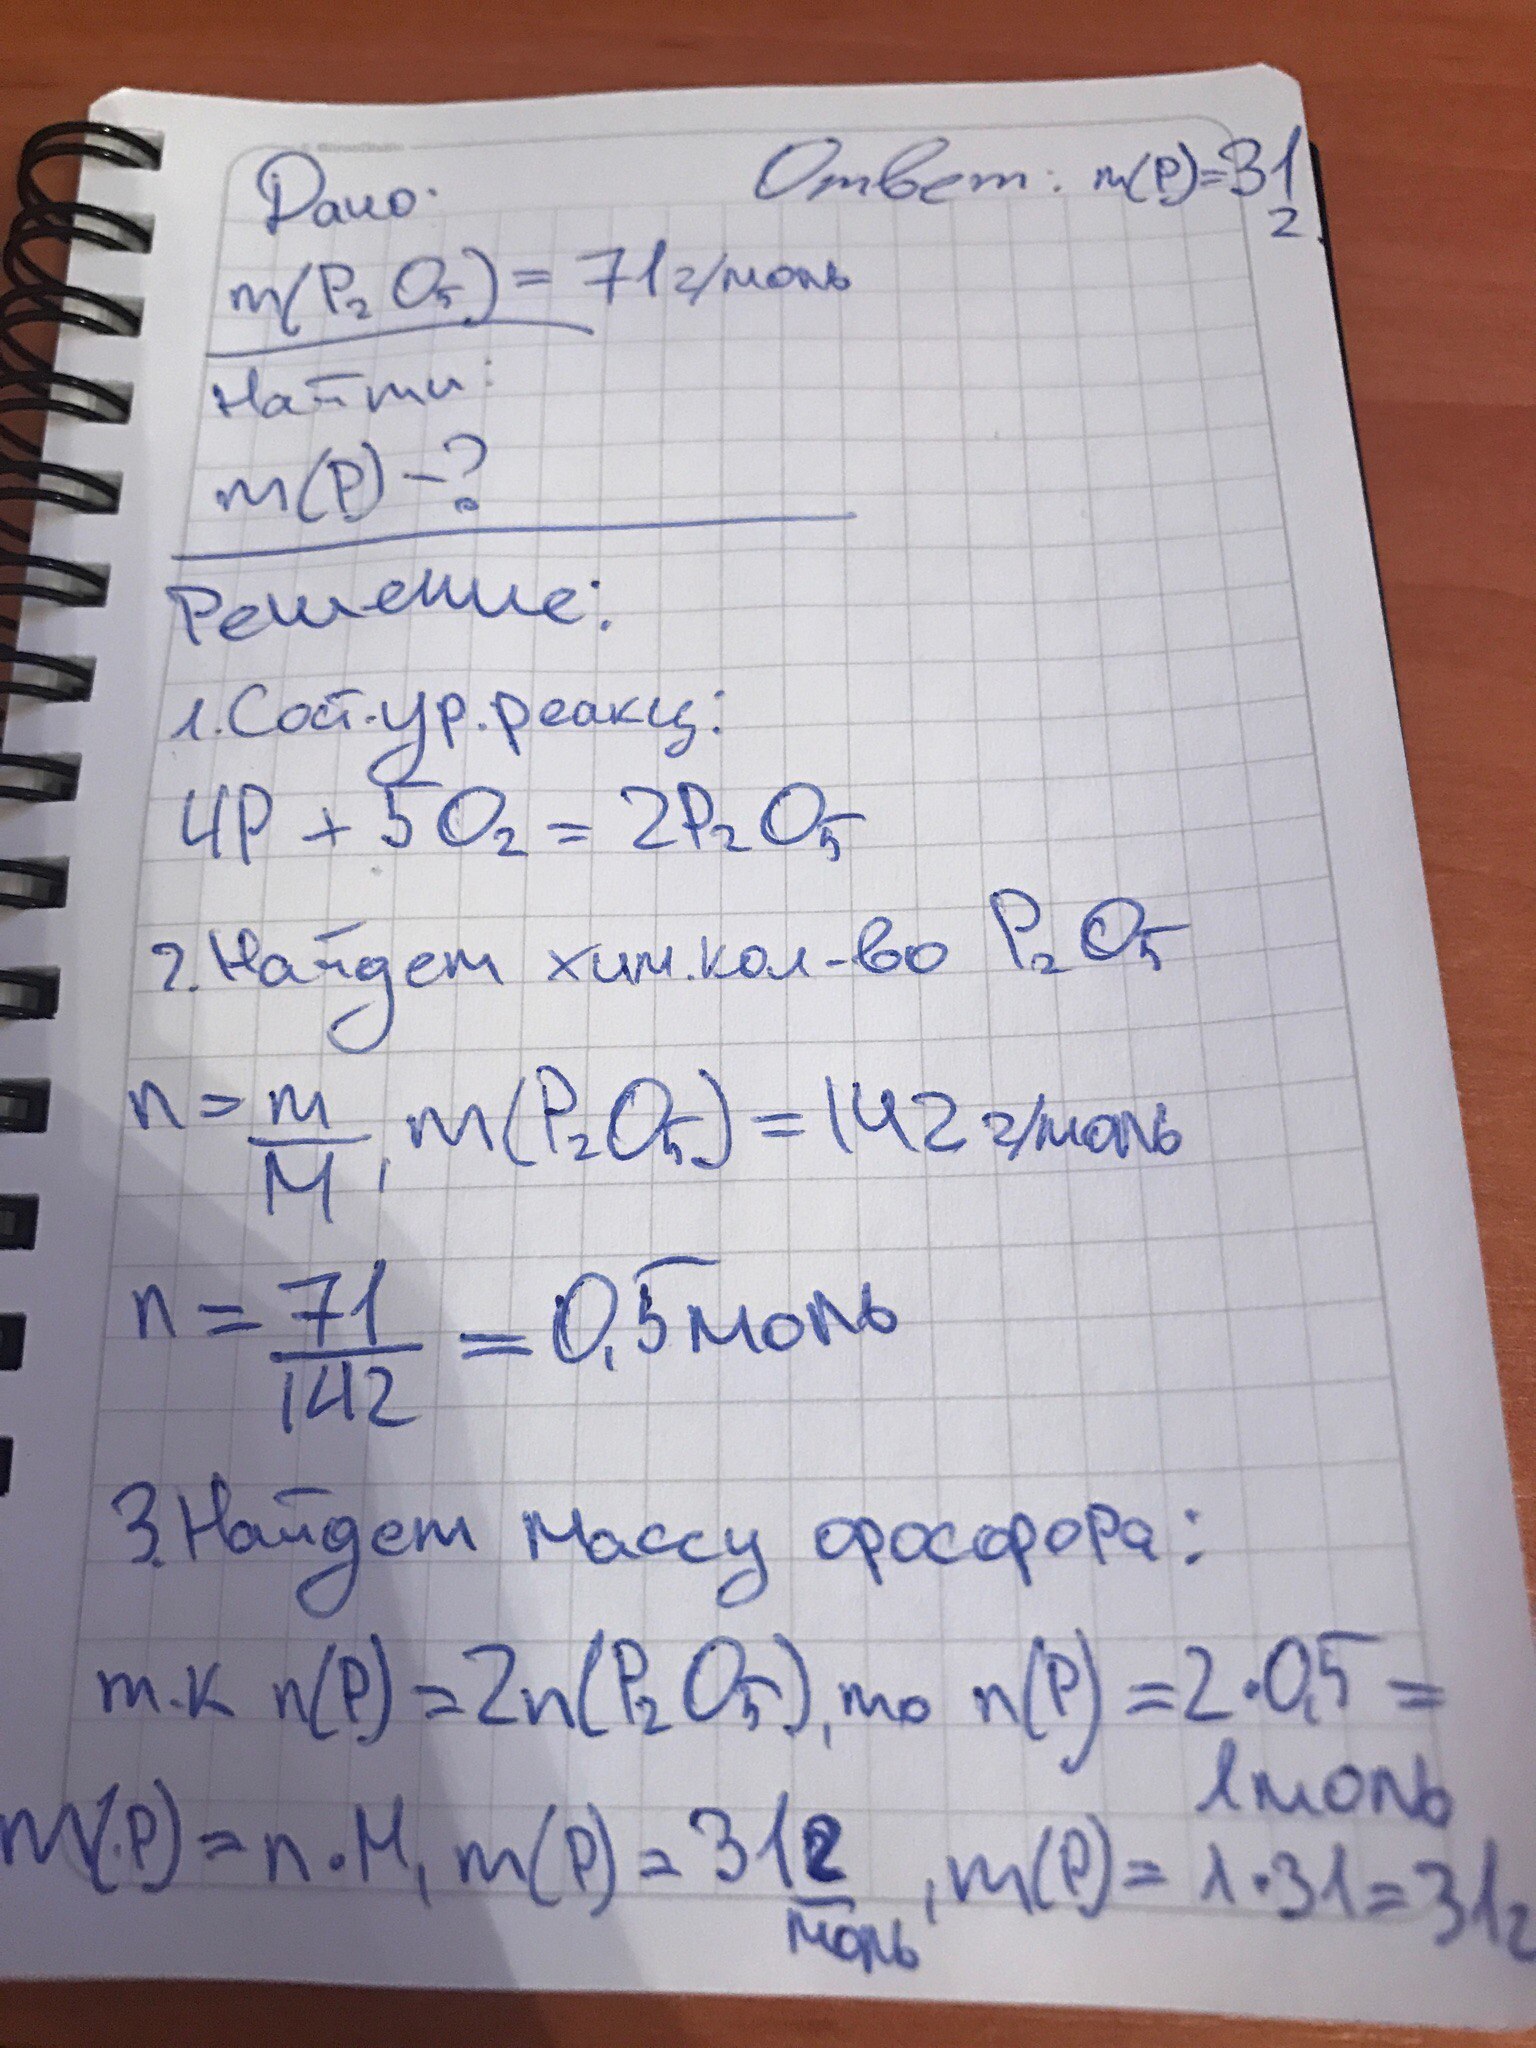 Дано:
Ответ: m(P)=31
г.
m(P₂O₅) = 71 г/моль
Найти:
m(P) -?
Решение:
1. Сост. ур. реакц:
4P + 5O₂ = 2P₂O₅
2. Найдем хим. кол-во P₂O₅
n = m/M, m(P₂O₅) = 142 г/моль
n = 71/142 = 0,5 моль
3. Найдем массу фосфора:
т.к n(P) = 2n(P₂O₅), то n(P) = 2·0,5 =
1 моль
m(P) = n·M, m(P) = 31 г/моль, m(P) = 1·31 = 31г